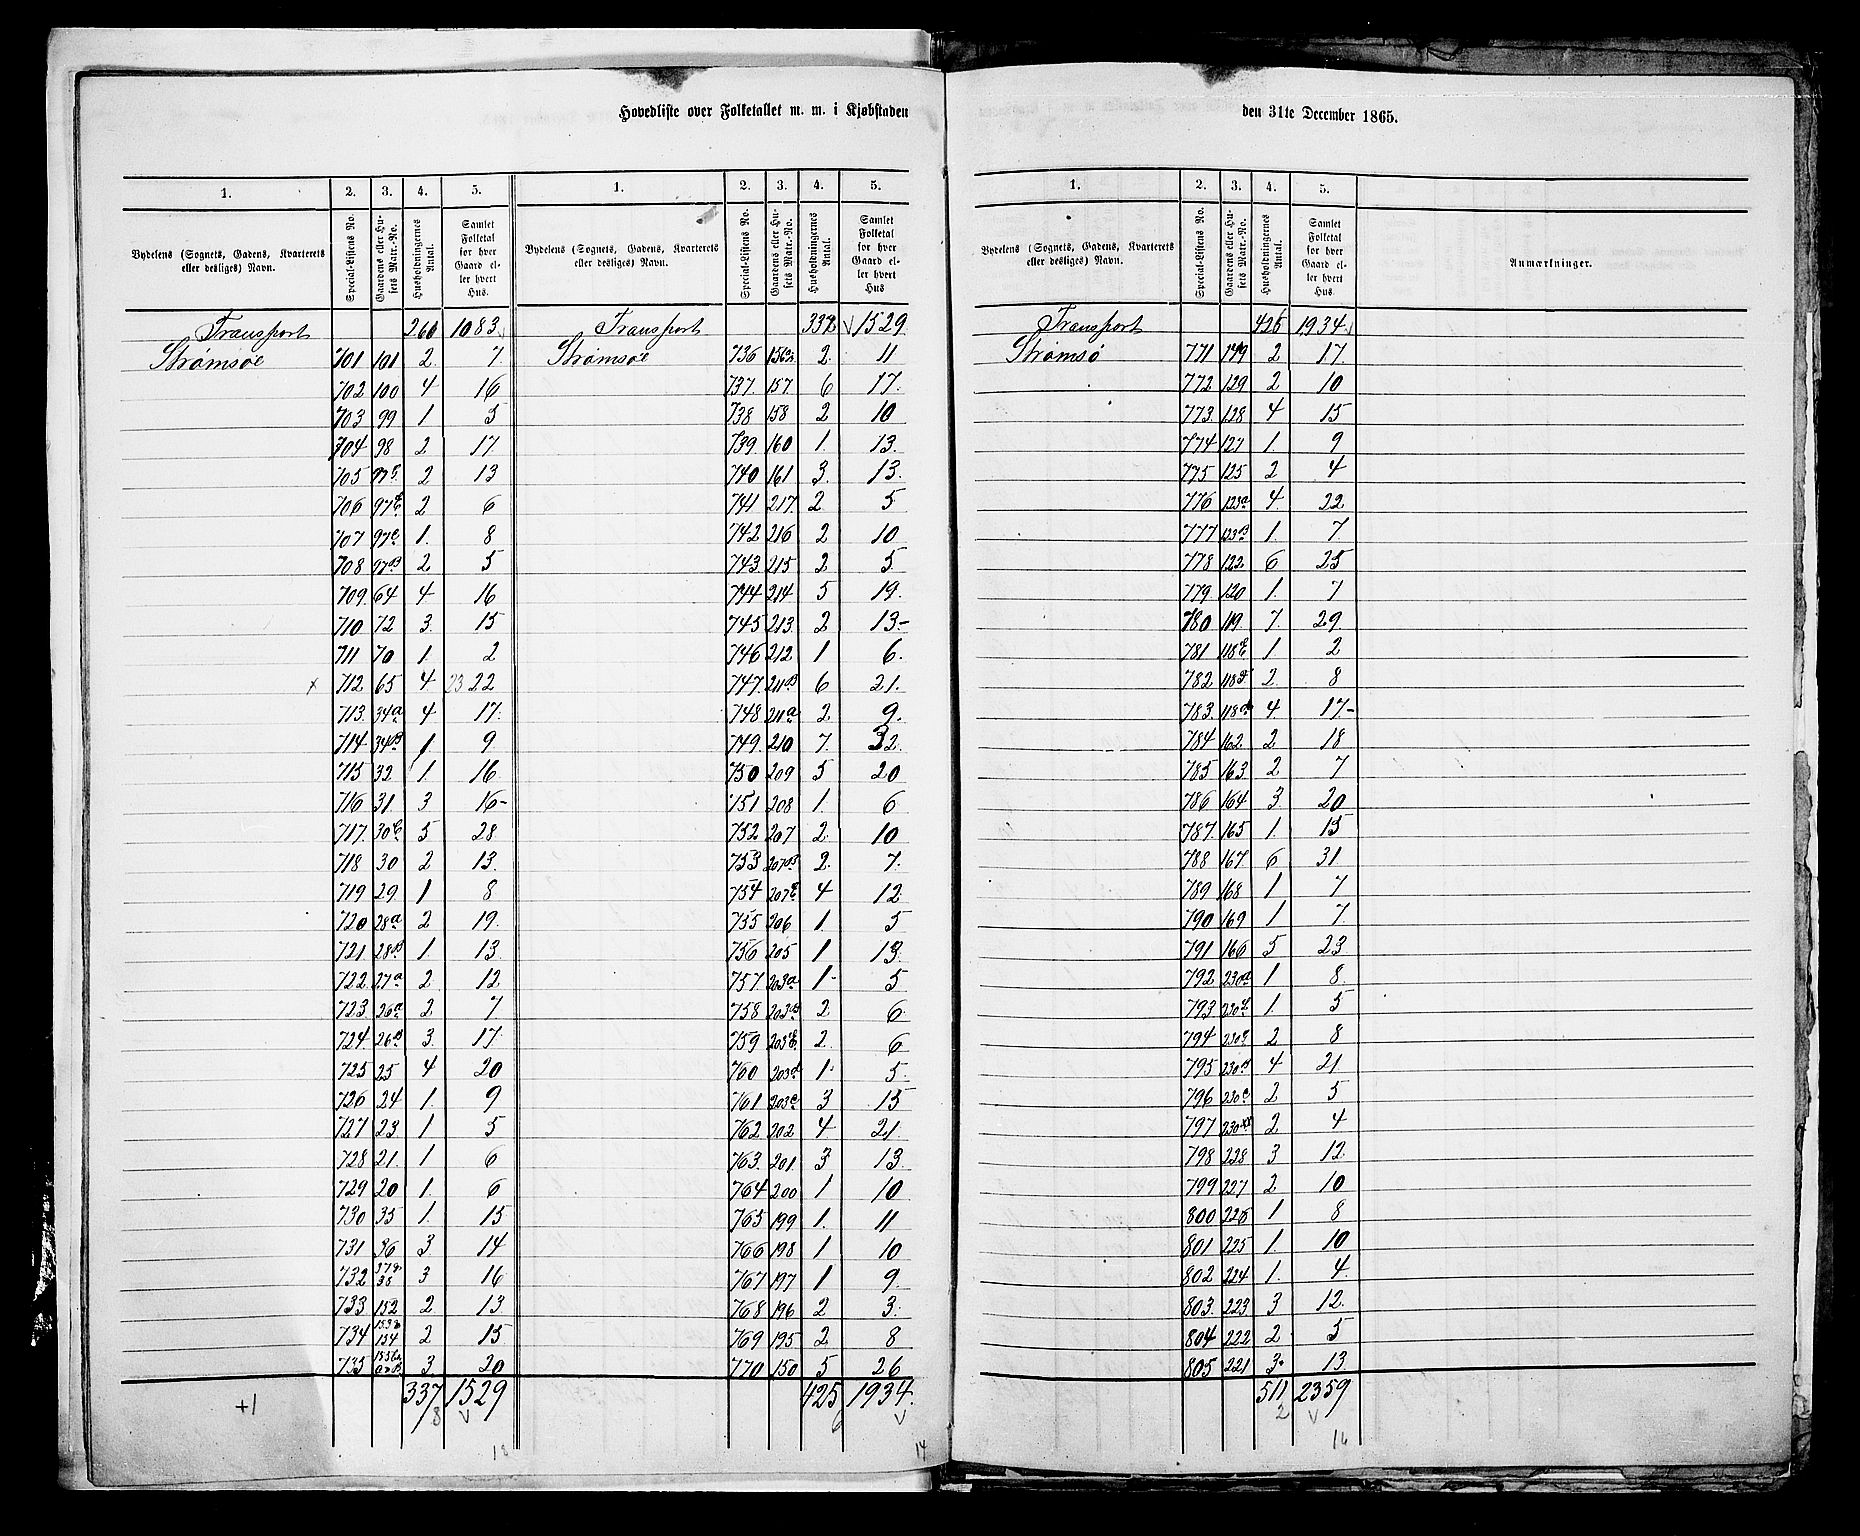 Hovedliste over Folketallet m. m. i Kjøbstaden den 31te December 1865.
1. 2. 3. 4. 5.
Bydelens (Sognets, Gadens, Kvarterets eller desliges) Navn. Special-Listens No. Gaardens eller Husets Matr.-No. Husholdningernes Antal. Samlet Folketal for hver Gaard eller hvert Hus.
Transport 260 1083
Strømsøe 701 101 2. 7
702 100 4 16
703 99 1 5
704 98 2 17.
705 2 13
706 2 6
707 1. 8
708 2 5
709. 64 4 16
710 72 3. 15
711 70 1. 2
x 712 65 4 23 22
713. 34a 4 17.
714 34B 1 9
715 32 1 16
716 31. 3 16-
717. 30 5 28
718 30 2 13.
719 29 1 8
720 28a 2 19.
721. 28B 1 13
722 27a 2 12
723. 26a 2 7
724. 26B 3. 17.
725 25 4 20
726 24 1. 9
727 23. 1 5
728 21. 1 6
729 20 1. 6
730 35 1. 15
731 36 3 14
732 3 16
733 152 2 13
734 2 15
735 3 20
337 1529
8
+1
1. 2. 3. 4. 5.
Bydelens (Sognets, Gadens, Kvarterets eller desliges) Navn. Special-Listens No. Gaardens eller Husets Matr.-No. Husholdningernes Antal. Samlet Folketal for hver Gaard eller hvert Hus
Transport 1529
Strømsøe 736 2. 11
737. 157 6 17.
738 158 2 10
739. 160 1. 13.
740 161 3. 13.
741 217. 2 5
742 216 2 10
743. 215 2 5
744 214 5 19.
745 213. 2 13-
746 212 1 6.
747. 211B 6 21.
748 211a 2 9.
749. 210 7. 32
750 209 5 20
751 208 1. 6
752. 207 2. 10
753 207B 2. 7.
754 4 12
755 206 1. 5
756 205 1 13.
757. 203a 1- 5
758 203B 2 6
759 2. 6
760 1. 5.
761 3 15
762 202 4 21.
763. 201. 3 13
764 200 1 10
765 199 1. 11
766 198 1 10
767 197 1 9
768 196 2 3.
769 195 2 8
770 150 5 26
425 1934.
6
14
1. 2. 3. 4. 5.
Bydelens (Sognets, Gadens, Kvarterets eller desliges) Navn. Special-Listens No. Gaardens eller Husets Matr.-No. Husholdningernes Antal. Samlet Folketal for hver Gaard eller hvert Hus. Anmærkninger.
Transport 1934
Strømsø 771 149 2 17.
772 129 2 10
773. 128 4 15
774 127 1. 9
775 125 2 4
776 123a 4. 22
777 123B 1. 7
778 122 6 25
779 120 1. 7
780 119. 7. 29
781 1. 2
782 2. 8
783. 4. 17-
784 162. 2 18
785 163 2 7
786 164 3. 20
787. 165 1. 15
788 167. 6 31
789 168 1 7
790 169 1 7.
791 166 5 23
792 230a 1 8.
793 1. 5
794 2 8
795 4 21
796 2 5
797 2 4
798 228 3 12.
799 227 2 10
800 226 1 8
801 225 1. 10
802 224 1. 4.
803. 223 3 12.
804 222 2 5
805 221 3. 13.
511 2359
2
16